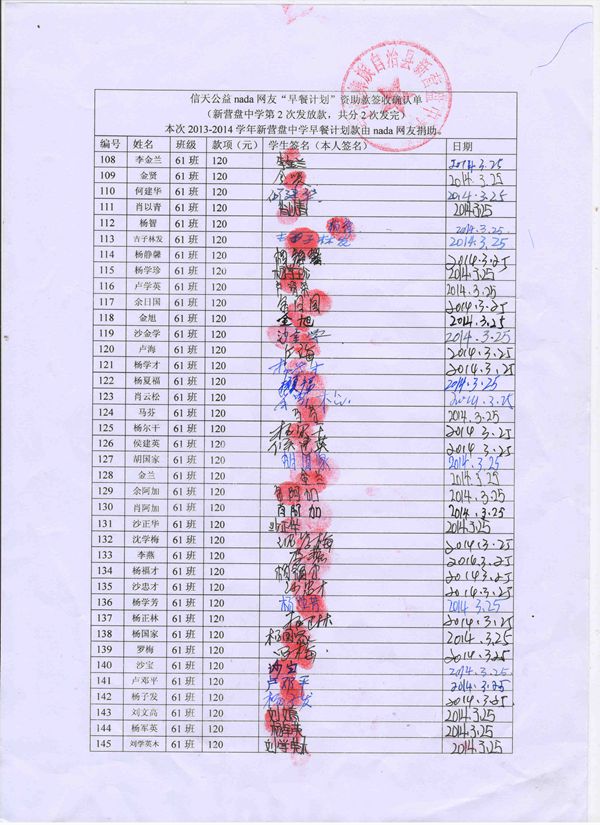 族自治县新营盘中
信天公益nada网友“早餐计划”资助款签收确认单
（新营盘中学第2次发放款，共分2次发完）
本次2013-2014学年新营盘中学早餐计划款由nada网友捐助。
编号 姓名 班级 款项（元） 学生签名（本人签名） 日期
108 李金兰 61班 120 李金兰 2014.3.25
109 金贤 61班 120 金贤 2014.3.25
110 何建华 61班 120 何建华 2014.3.25
111 肖以青 61班 120 2014.3.25
112 杨智 61班 120 杨智 2014.3.25
113 吉子林发 61班 120 吉子林发 2014.3.25
114 杨静馨 61班 120 杨静馨 2014.3.25
115 杨学珍 61班 120 杨学珍 2014.3.25
116 卢学英 61班 120 2014.3.25
117 余日国 61班 120 余日国 2014.3.25
118 金旭 61班 120 金旭 2014.3.25
119 沙金学 61班 120 沙金学 2014.3.25
120 卢海 61班 120 卢海 2014.3.25
121 杨学才 61班 120 杨学才 2014.3.25
122 杨夏福 61班 120 2014.3.25
123 肖云松 61班 120 2014.3.25
124 马芬 61班 120 马芬 2014.3.25
125 杨尔干 61班 120 杨尔干 2014.3.25
126 侯建英 61班 120 侯建英 2014.3.25
127 胡国家 61班 120 胡国家 2014.3.25
128 金兰 61班 120 金兰 2014.3.25
129 余阿加 61班 120 2014.3.25
130 肖阿加 61班 120 肖阿加 2014.3.25
131 沙正华 61班 120 沙正华 2014.3.25
132 沈学梅 61班 120 沈学梅 2014.3.25
133 李燕 61班 120 李燕 2014.3.25
134 杨福才 61班 120 杨福才 2014.3.25
135 沙忠才 61班 120 沙忠才 2014.3.25
136 杨学芳 61班 120 杨学芳 2014.3.25
137 杨正林 61班 120 杨正林 2014.3.25
138 杨国家 61班 120 杨国家 2014.3.25
139 罗梅 61班 120 罗梅 2014.3.25
140 沙宝 61班 120 沙宝 2014.3.25
141 卢邓平 61班 120 卢邓平 2014.3.25
142 杨子发 61班 120 杨子发 2014.3.25
143 刘文高 61班 120 2014.3.25
144 杨军英 61班 120 杨军英 2014.3.25
145 刘学英木 61班 120 刘学英木 2014.3.25